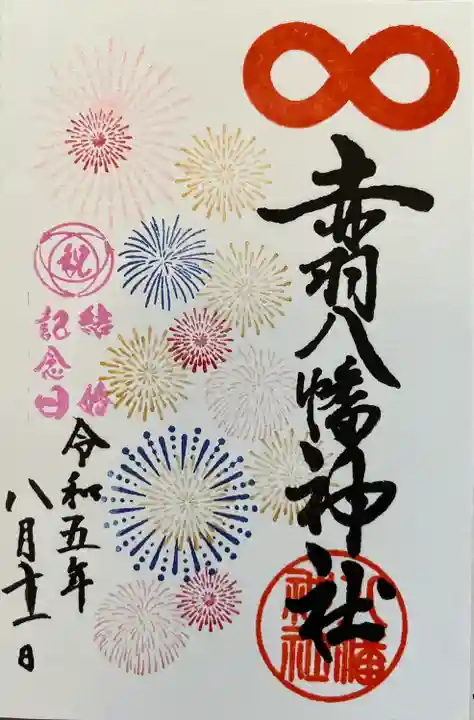 赤羽八幡神社
八幡神社
祝
結婚
記念日
令和五年
八月十一日